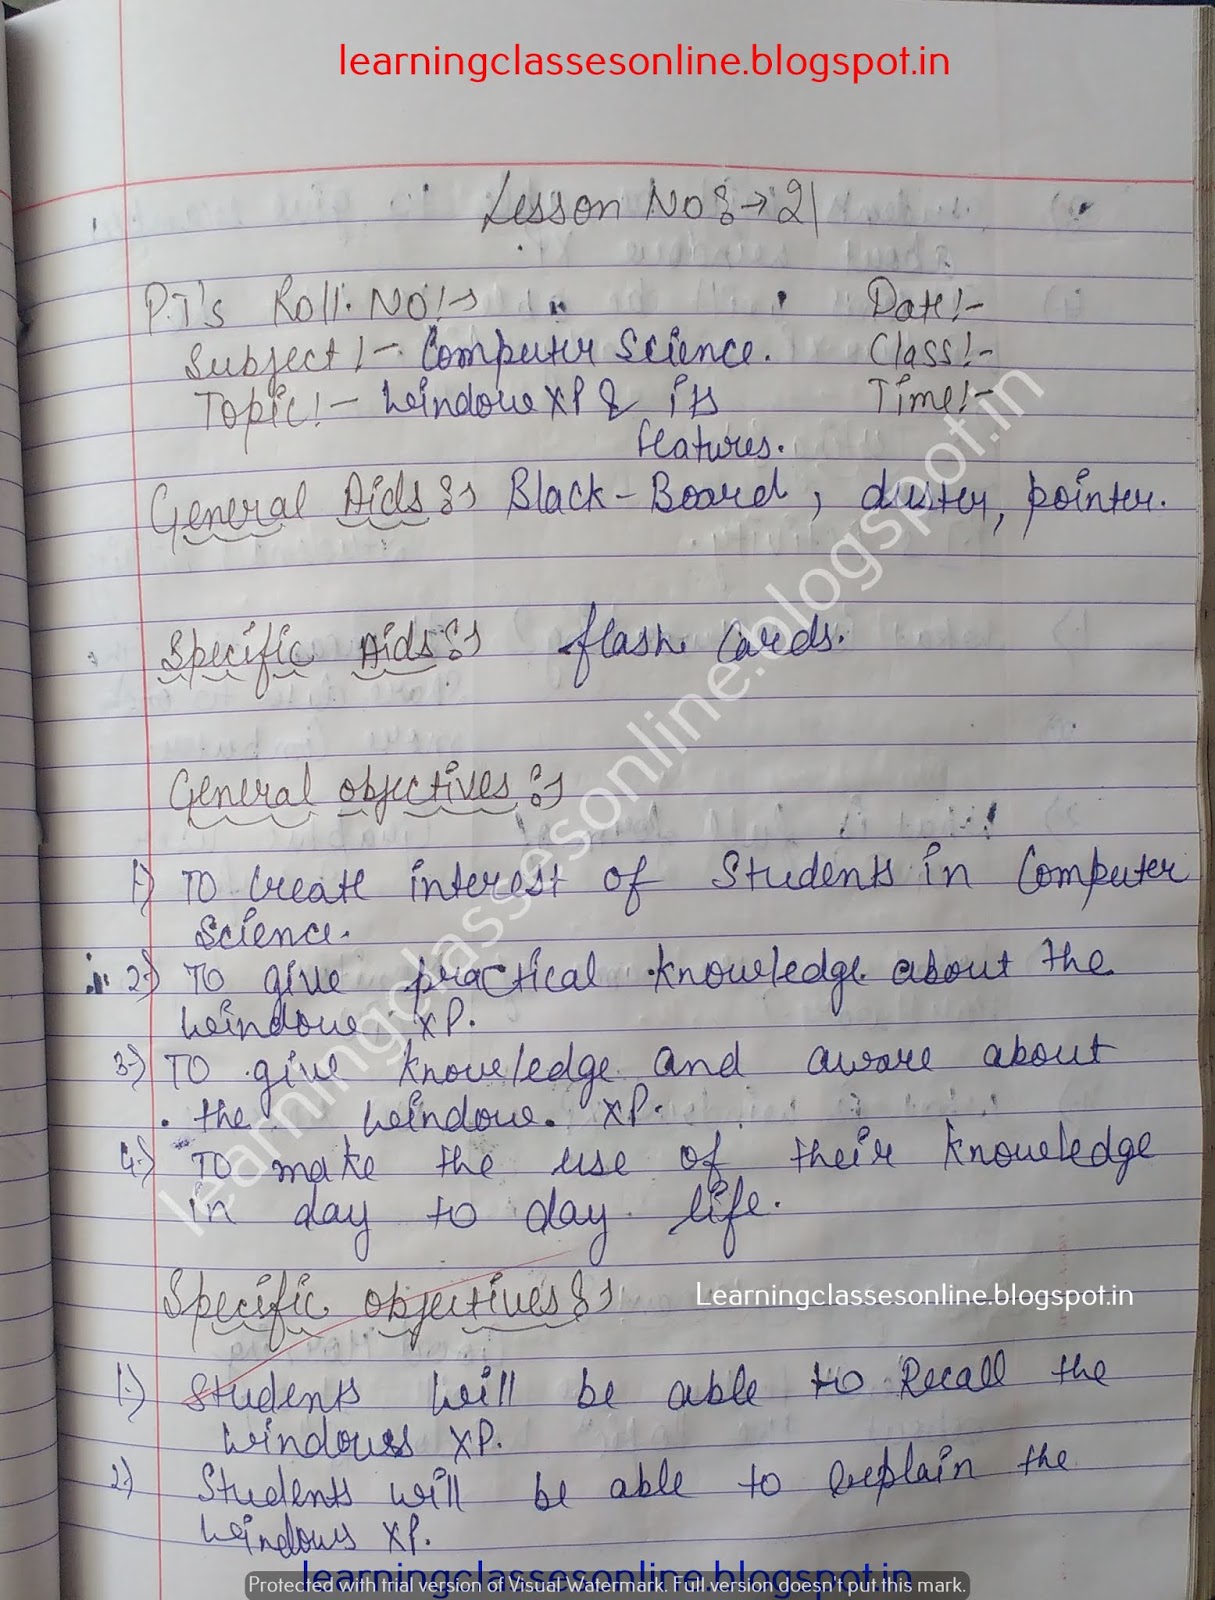 learningclassesonline.blogspot.in
Lesson No:→ 21
P.T's Roll. No!→ Date!-
Subject!- Computer Science. Class!-
Topic!- Window XP & its Time!-
features.
General Aids:→ Black-Board, duster, pointer.
Specific Aids:→ flash cards.
General objectives:→
1.) To create interest of Students in Computer
Science.
2.) To give practical knowledge about the
window XP.
3.) To give knowledge and aware about
the window. XP.
4.) To make the use of their knowledge
in day to day life.
Specific objectives:→
Learningclassesonline.blogspot.in
1.) Students will be able to Recall the
windows XP.
2.) Students will be able to explain the
windows XP.
learningclassesonline.blogspot.in
learningclassesonline.blogspot.in
Protected with trial version of Visual Watermark. Full version doesn't put this mark.